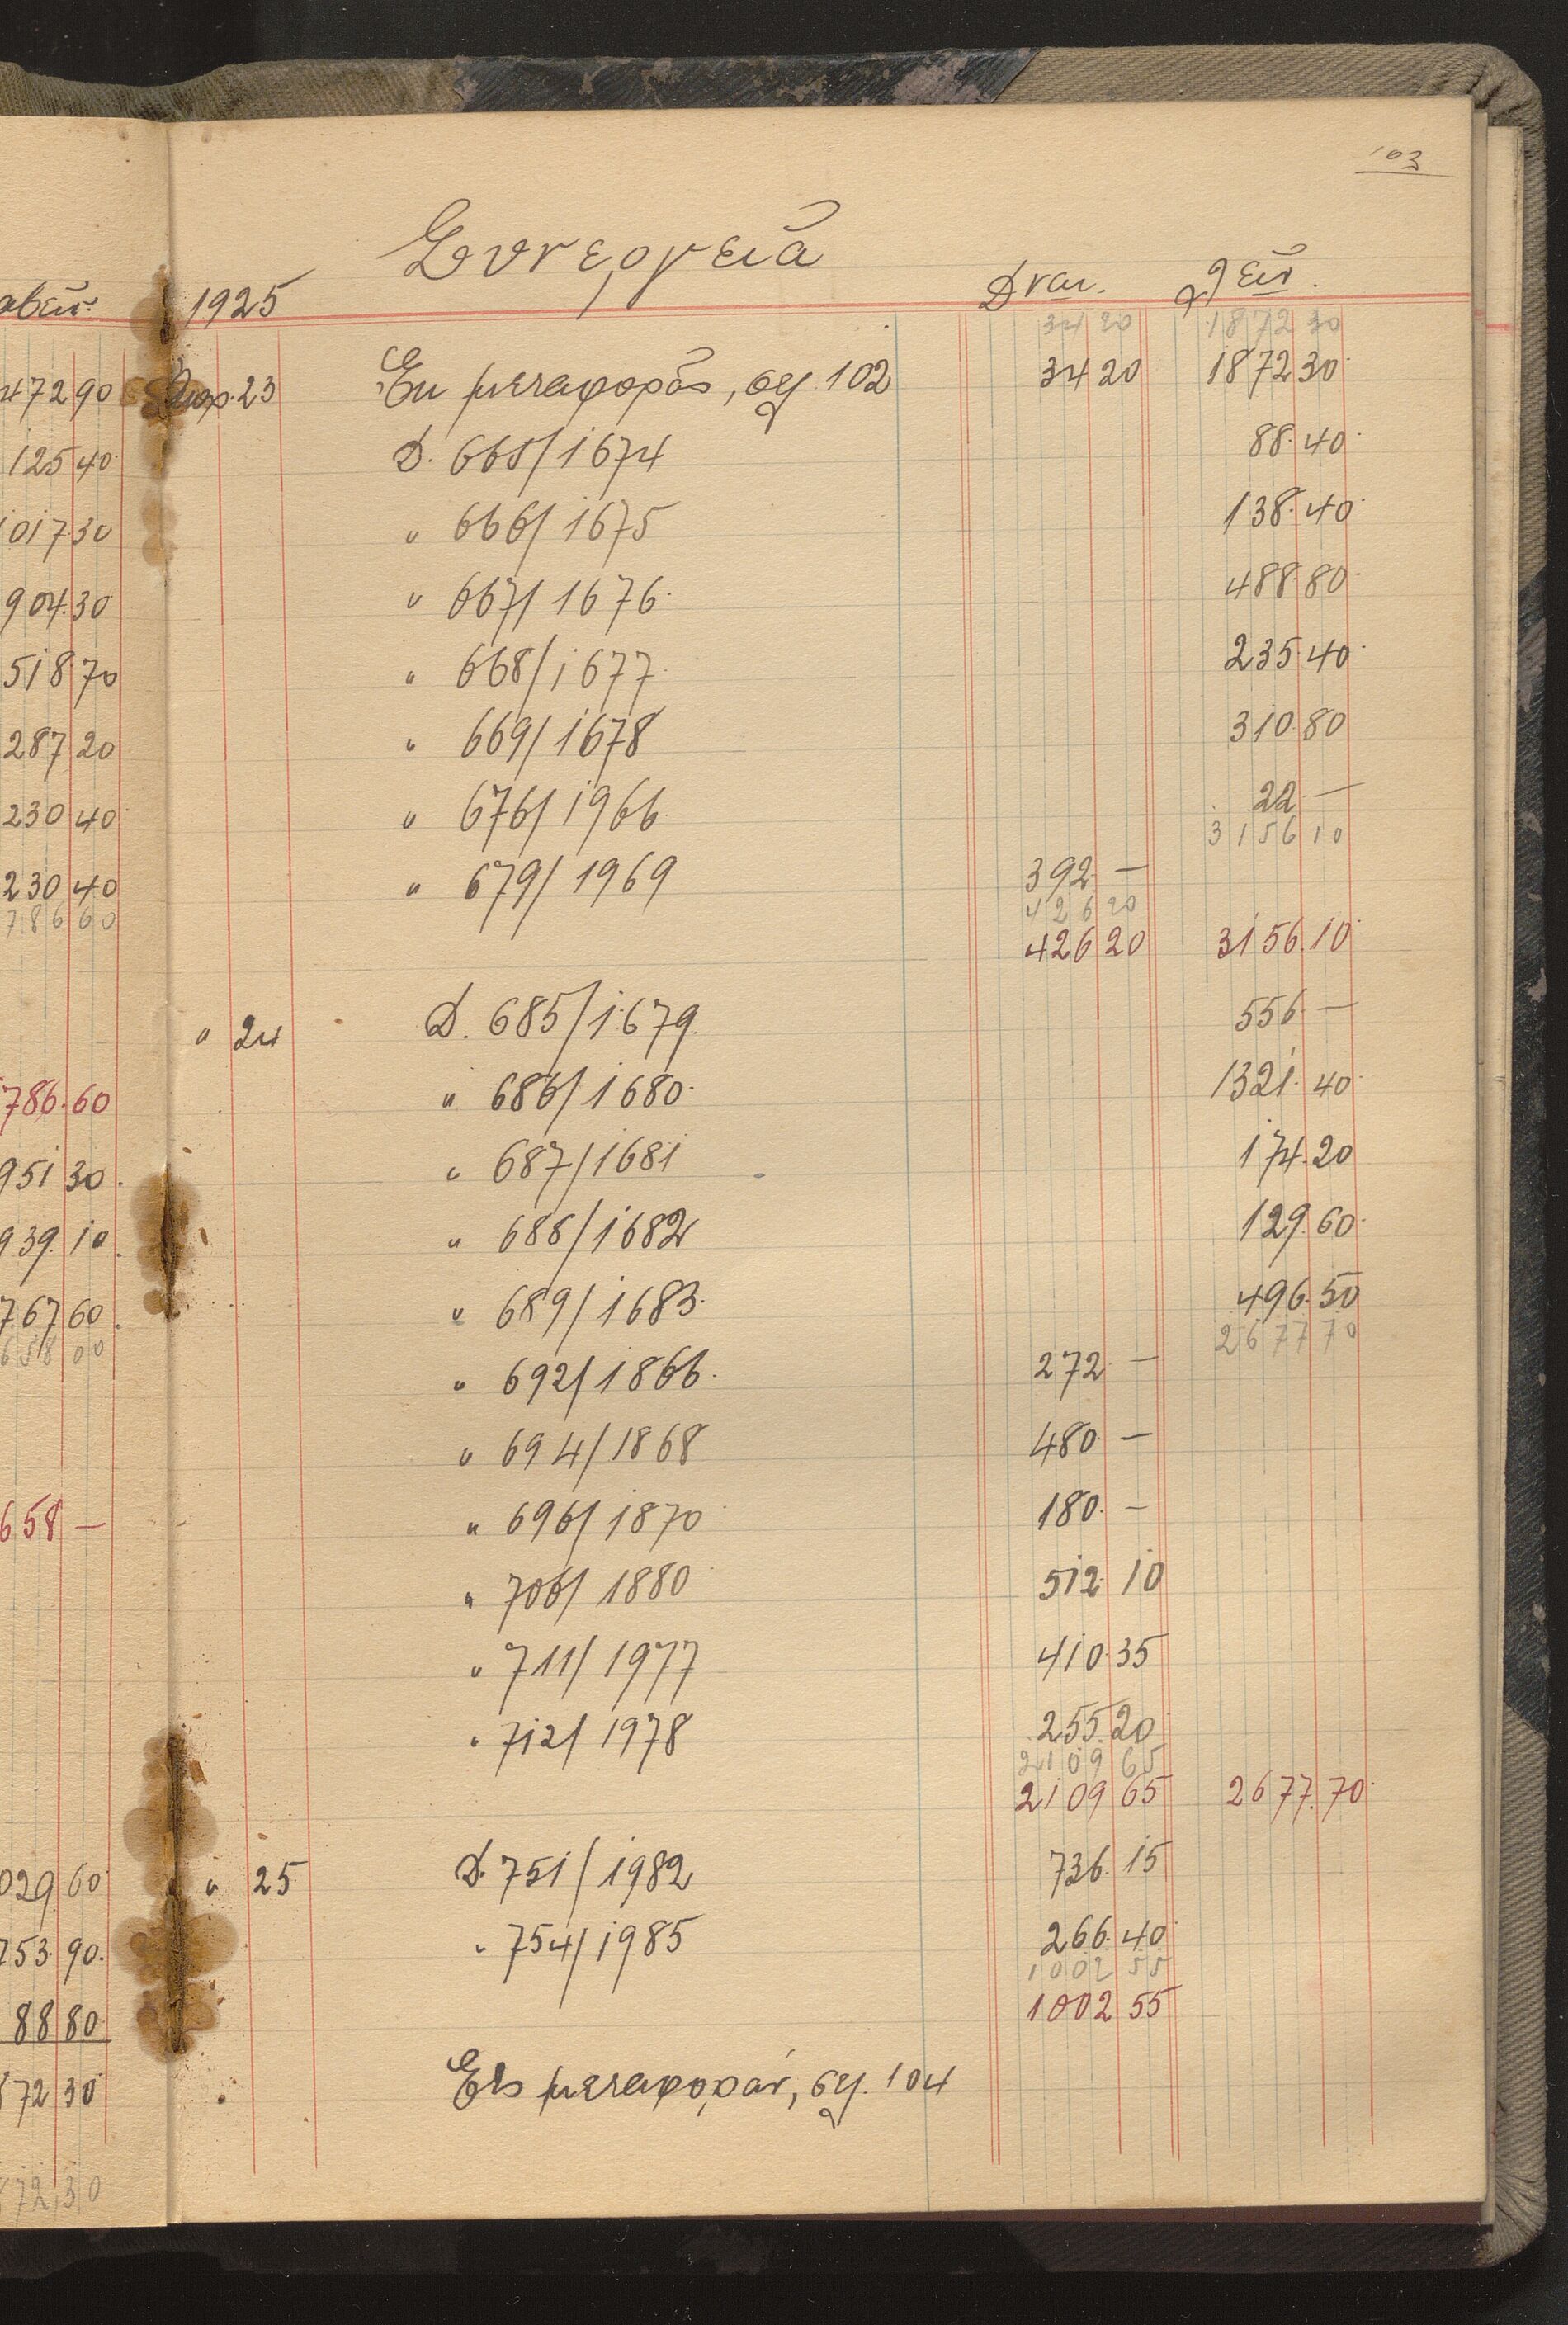 103
Συνεργεῖα
1925
Εκ μεταφορᾶς, σελ. 102 34 20 1872 30
34 20 1872 30
23
Δ. 665/1674 88.40
" 666/1675 138.40
" 667/1676 488 80
" 668/1677 235.40
" 669/1678 310.80
" 676/1966 22.—
3156 10
" 679/1969 392.—
426 20
426 20 3156.10
" 24 Δ. 685/1679 556.—
" 686/1680 1321.40
" 687/1681 174.20
" 688/1682 129.60
" 689/1683 496.50
2677 70
" 692/1866 272.—
" 694/1868 480.—
" 696/1870 180.—
" 706/1880 512.10
" 711/1977 410.35
" 712/1978 255.20
2109 65
2109 65 2677.70
" 25 Δ. 751/1982 736.15
" 754/1985 266.40
1002 55
1002 55
Εἰς μεταφοράν, σελ. 104
472 90
125 40
017 30
904.30
518 70
287 20
230 40
230 40
786 60
786.60
951 30
939.10
767 60
658 00
658 —
029 60
253.90
88 80
872 30
872 30